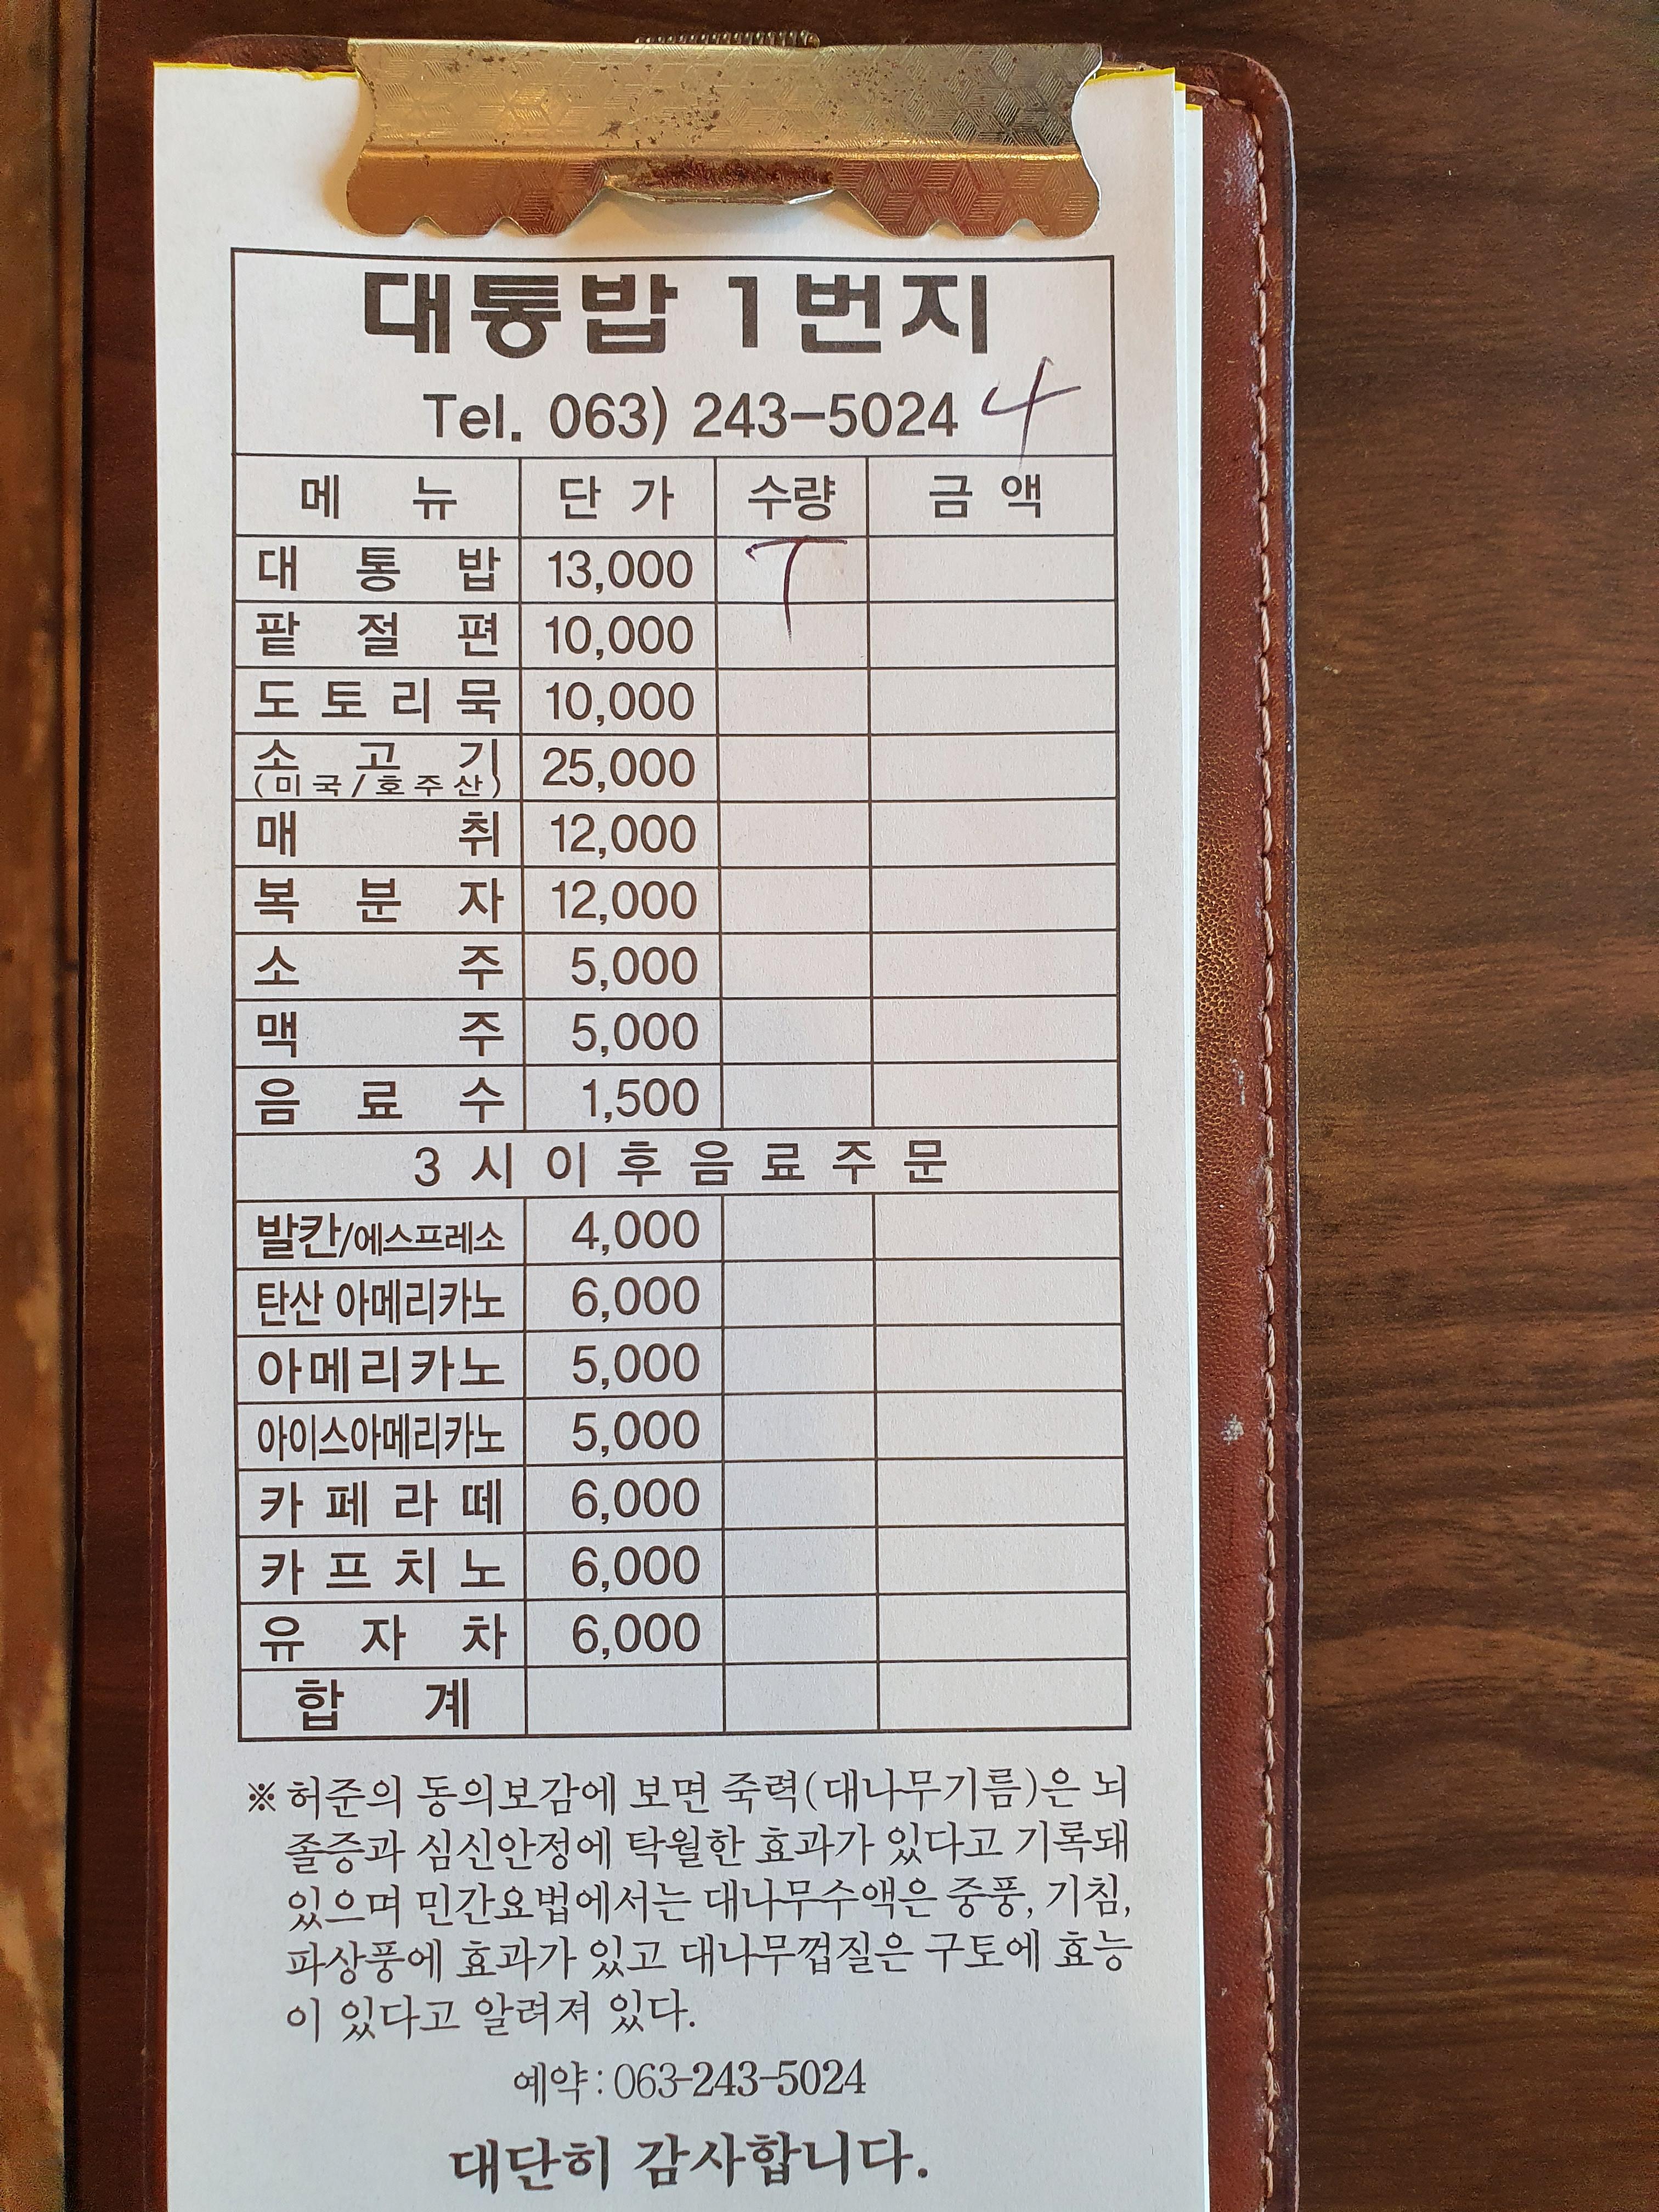 대통밥 1번지
Tel. 063) 243-5024 4
메 뉴 단 가 수량 금 액
대 통 밥 13,000
팥 절 편 10,000
도 토 리 묵 10,000
소 고 기 25,000
(미국/호주산)
매 취 12,000
복 분 자 12,000
소 주 5,000
맥 주 5,000
음 료 수 1,500
3 시 이 후 음 료 주 문
발칸/에스프레소 4,000
탄산 아메리카노 6,000
아메리카노 5,000
아이스아메리카노 5,000
카 페 라 떼 6,000
카 프 치 노 6,000
유 자 차 6,000
합 계
※ 허준의 동의보감에 보면 죽력(대나무기름)은 뇌
졸증과 심신안정에 탁월한 효과가 있다고 기록돼
있으며 민간요법에서는 대나무수액은 중풍, 기침,
파상풍에 효과가 있고 대나무껍질은 구토에 효능
이 있다고 알려져 있다.
예약 : 063-243-5024
대단히 감사합니다.